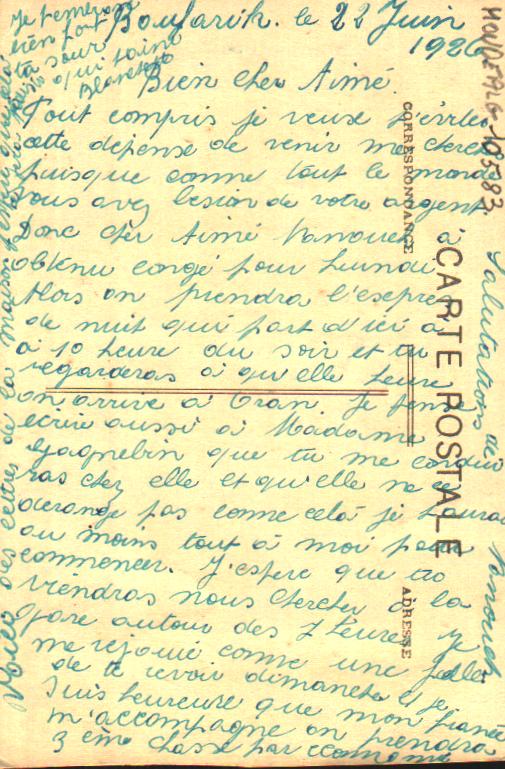 Boufarik. le 22 Juin
1926
Bien cher Aimé.
Tout compris je veux
cette dépense de venir me
puisque comme tout le monde
vous avez besoin de votre argent.
Donc cher Aimé Vanouch à
obtenu congé pour Lundi
Alors on prendra l'exprès
de nuit qui part d'ici à
à 10 heure du soir et tu
regarderas à qu'elle heure
on arrive à Oran. Je
écrire aussi à Madame
que tu me
ras chez elle et qu'elle ne ce
dérange pas comme celà je
au moins tout à moi pour
commencer. J'espère que tu
viendras nous chercher à la
gare autour des 7 heures. Je
me rejouie comme une folle
de te revoir dimanche et je
suis heureuse que mon fiancé
m'accompagne on prendra
3 ème classe par économie
Salutations de
Vanouch
Je
bien fort
ta sœur
qui t'aime
Blanche
des lettres de la maison
CARTE POSTALE
CORRESPONDANCE
ADRESSE
MOND-ALG-105783